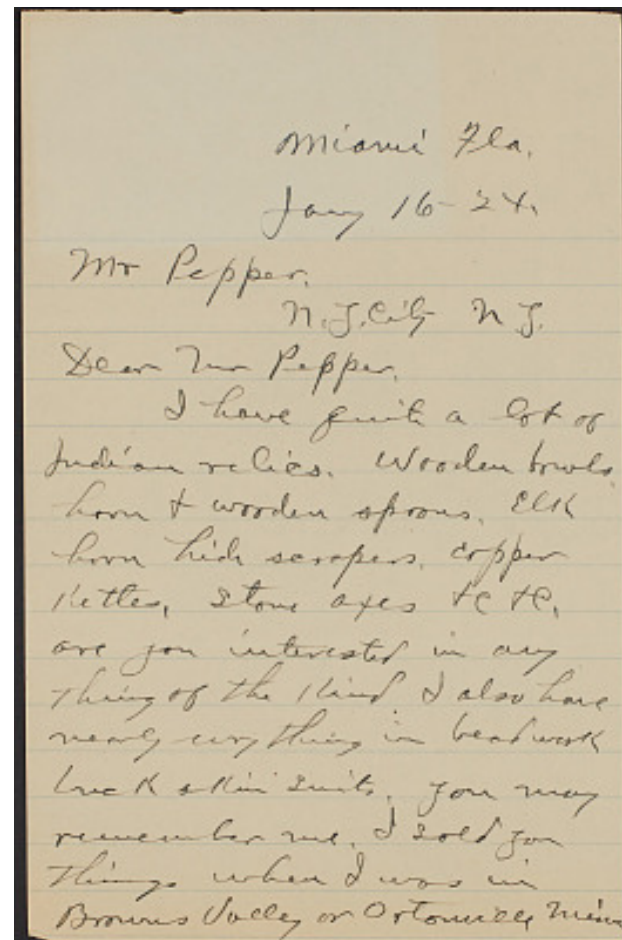 Miami Fla.
Jany 16-24.
Mr Pepper.
N.J. City N J.
Dear Mr Pepper.
I have quite a lot of
Indian relics. Wooden bowls
horn & wooden spoons. Elk
horn hide scrapers. copper
Kettles, Stone axes &c &c.
are you interested in any
thing of the kind I also have
nearly everything in beadwork
buck skin suits. you may
remember me. I sold you
things when I was in
Browns Valley or Ortonville Minn